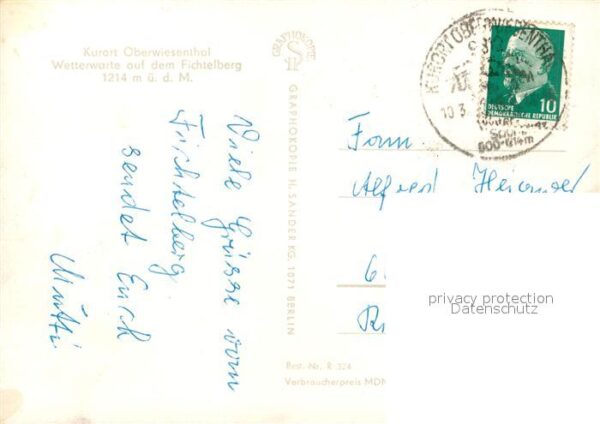 Kurort Oberwiesenthal
Wetterwarte auf dem Fichtelberg
1214 m ü. d. M.
Viele Grüsse vom
Fichtelberg
sendet Euch
Mutti
GRAPHOKOPIE
GRAPHOKOPIE H. SANDER KG. 1071 BERLIN
Best. Nr. R 324
Verbraucherpreis MDN
KURORT OBERWIESENTHAL
10.3
900-1214m
DEUTSCHE
DEMOKRATISCHE REPUBLIK
10
Fam.
Alfred
6
privacy protection
Datenschutz